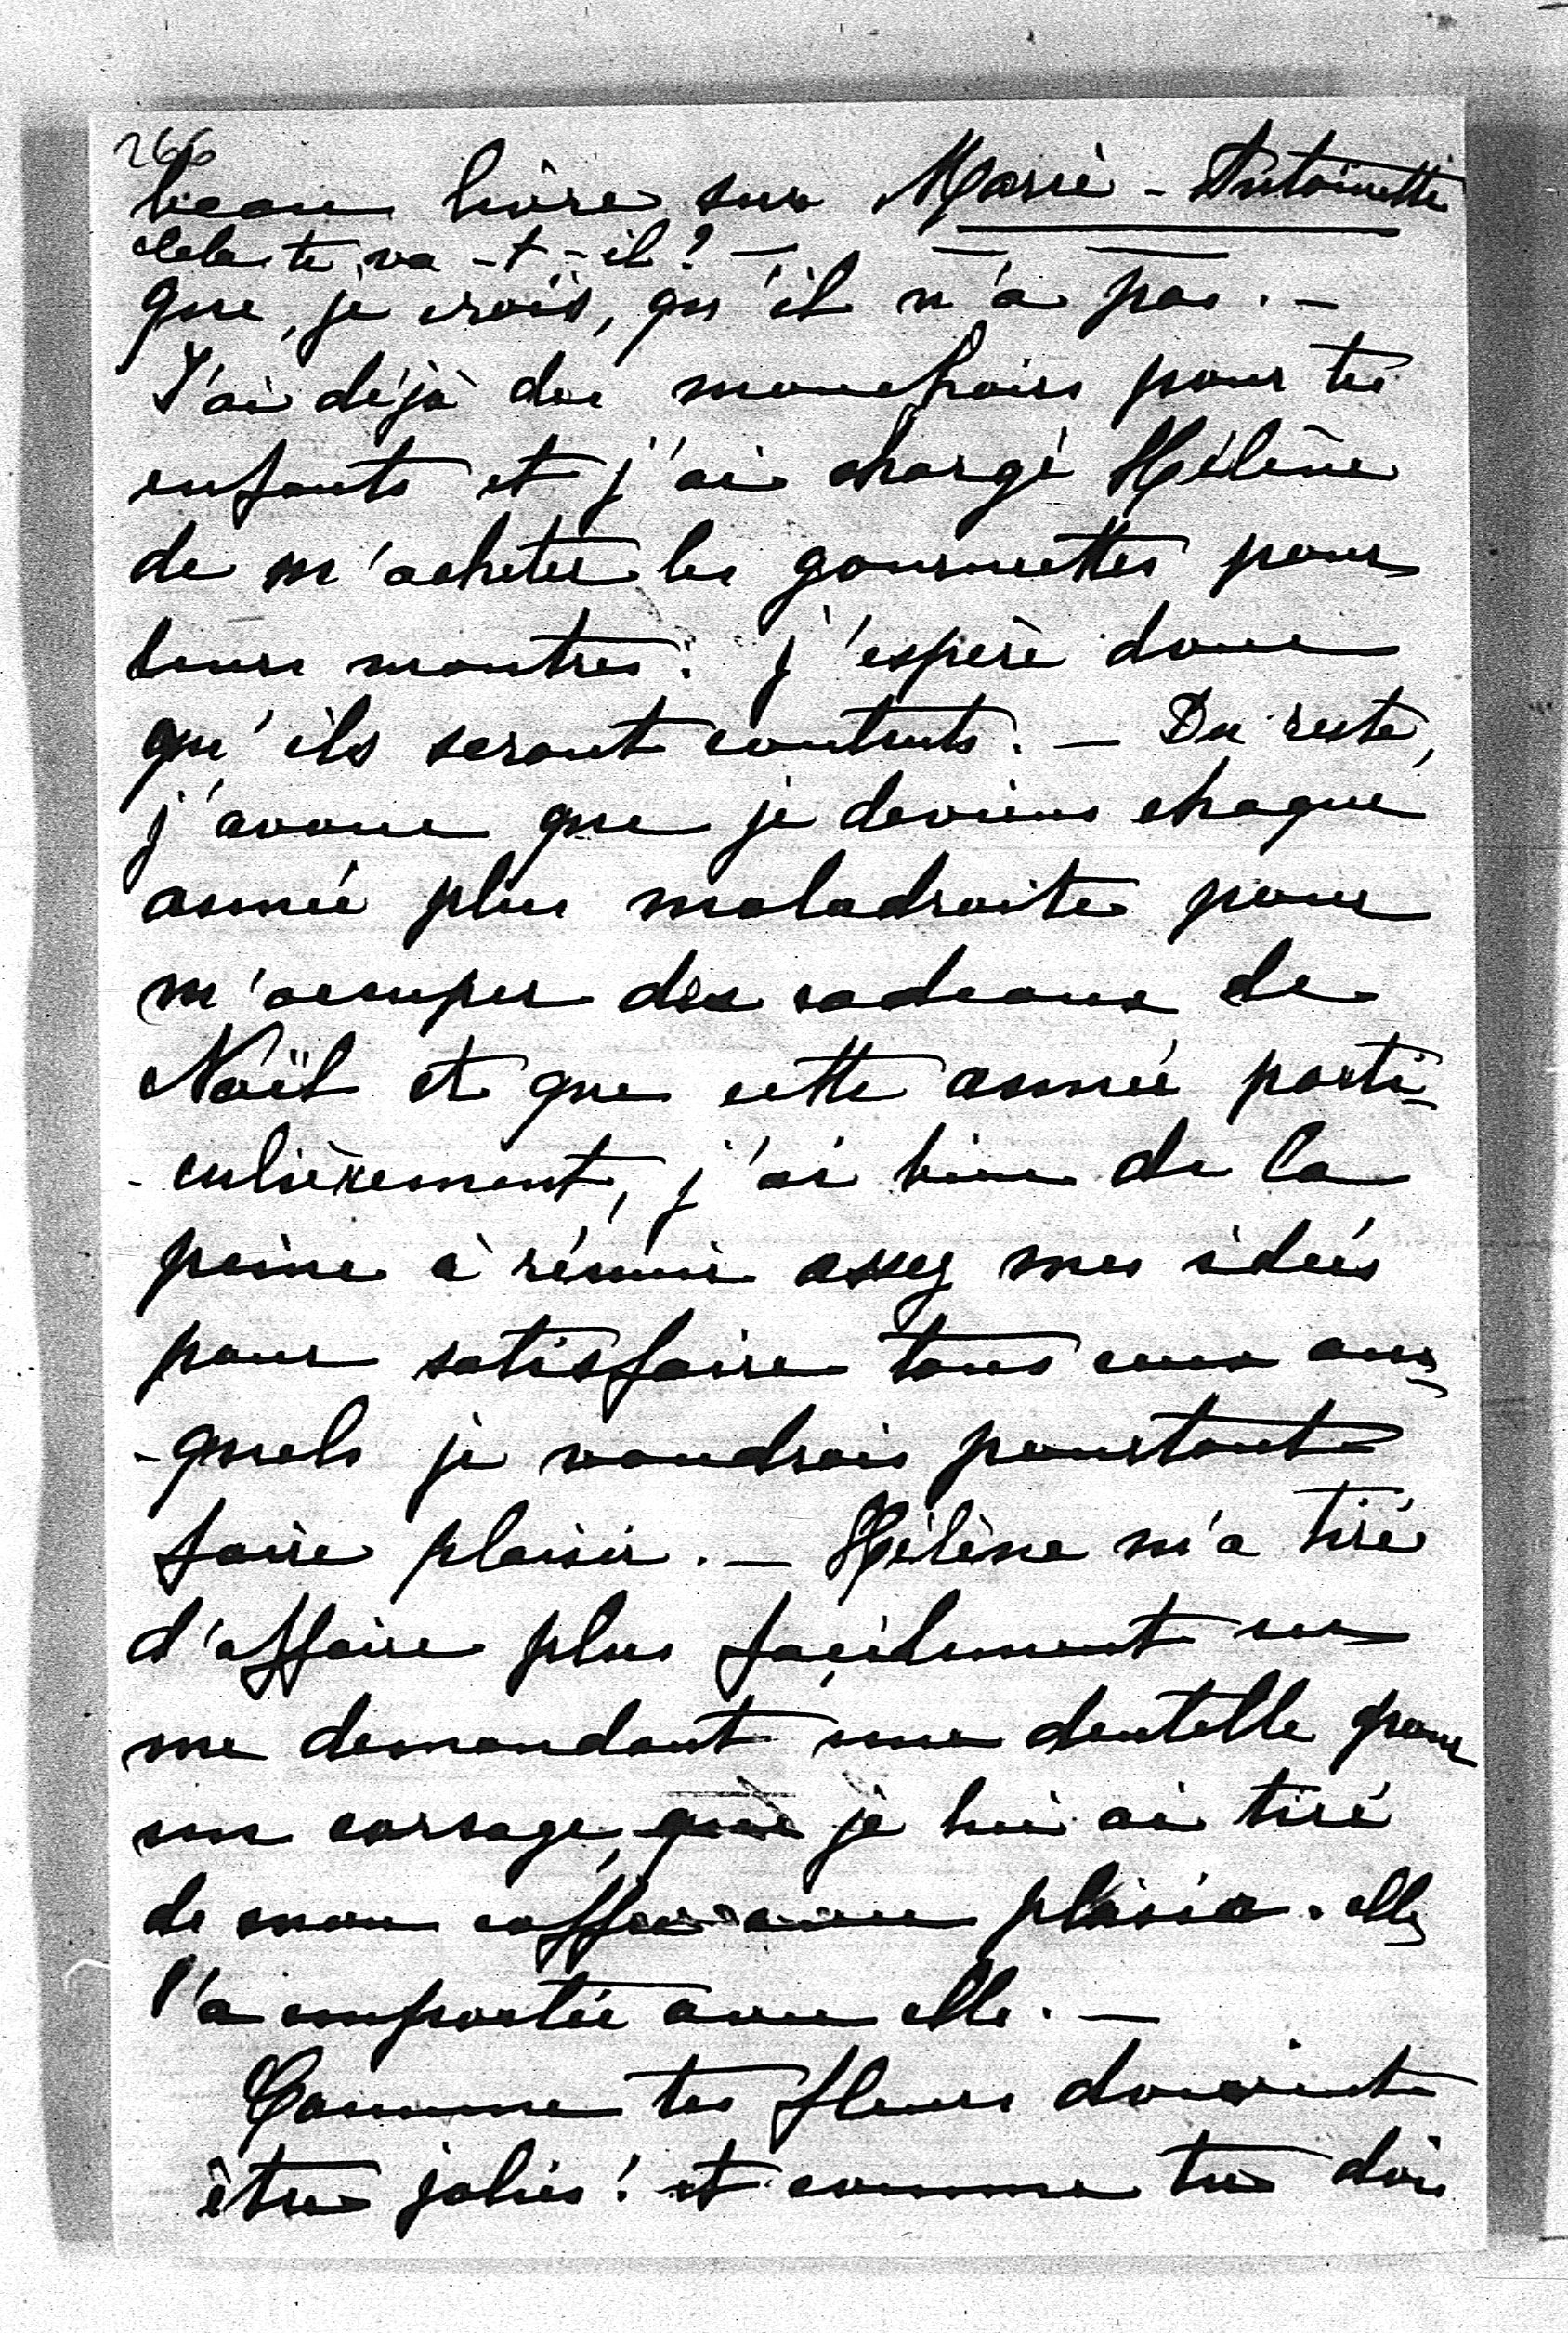 266
beau livre sur Marie-Antoinette
cela te va-t-il? —
que, je crois, qu'il n'a pas. —
J'ai déjà des mouchoirs pour tes
enfants et j'ai chargé Hélène
de m'acheter les gourmettes pour
leurs montres. j'espère donc
qu'ils seront contents. — Du reste,
j'avoue que je deviens chaque
année plus maladroite pour
m'occuper des cadeaux de
Noël et que cette année parti-
-culièrement, j'ai bien de la
peine à réunir assez mes idées
pour satisfaire tous ceux aux-
-quels je voudrais pourtant
faire plaisir. — Hélène m'a tiré
d'affaire plus facilement en
me demandant une dentelle pour
un corsage, que je lui ai tiré
de mon coffre avec plaisir. elle
l'a emportée avec elle. —
Comme tes fleurs doivent
être jolies! et comme tu dois